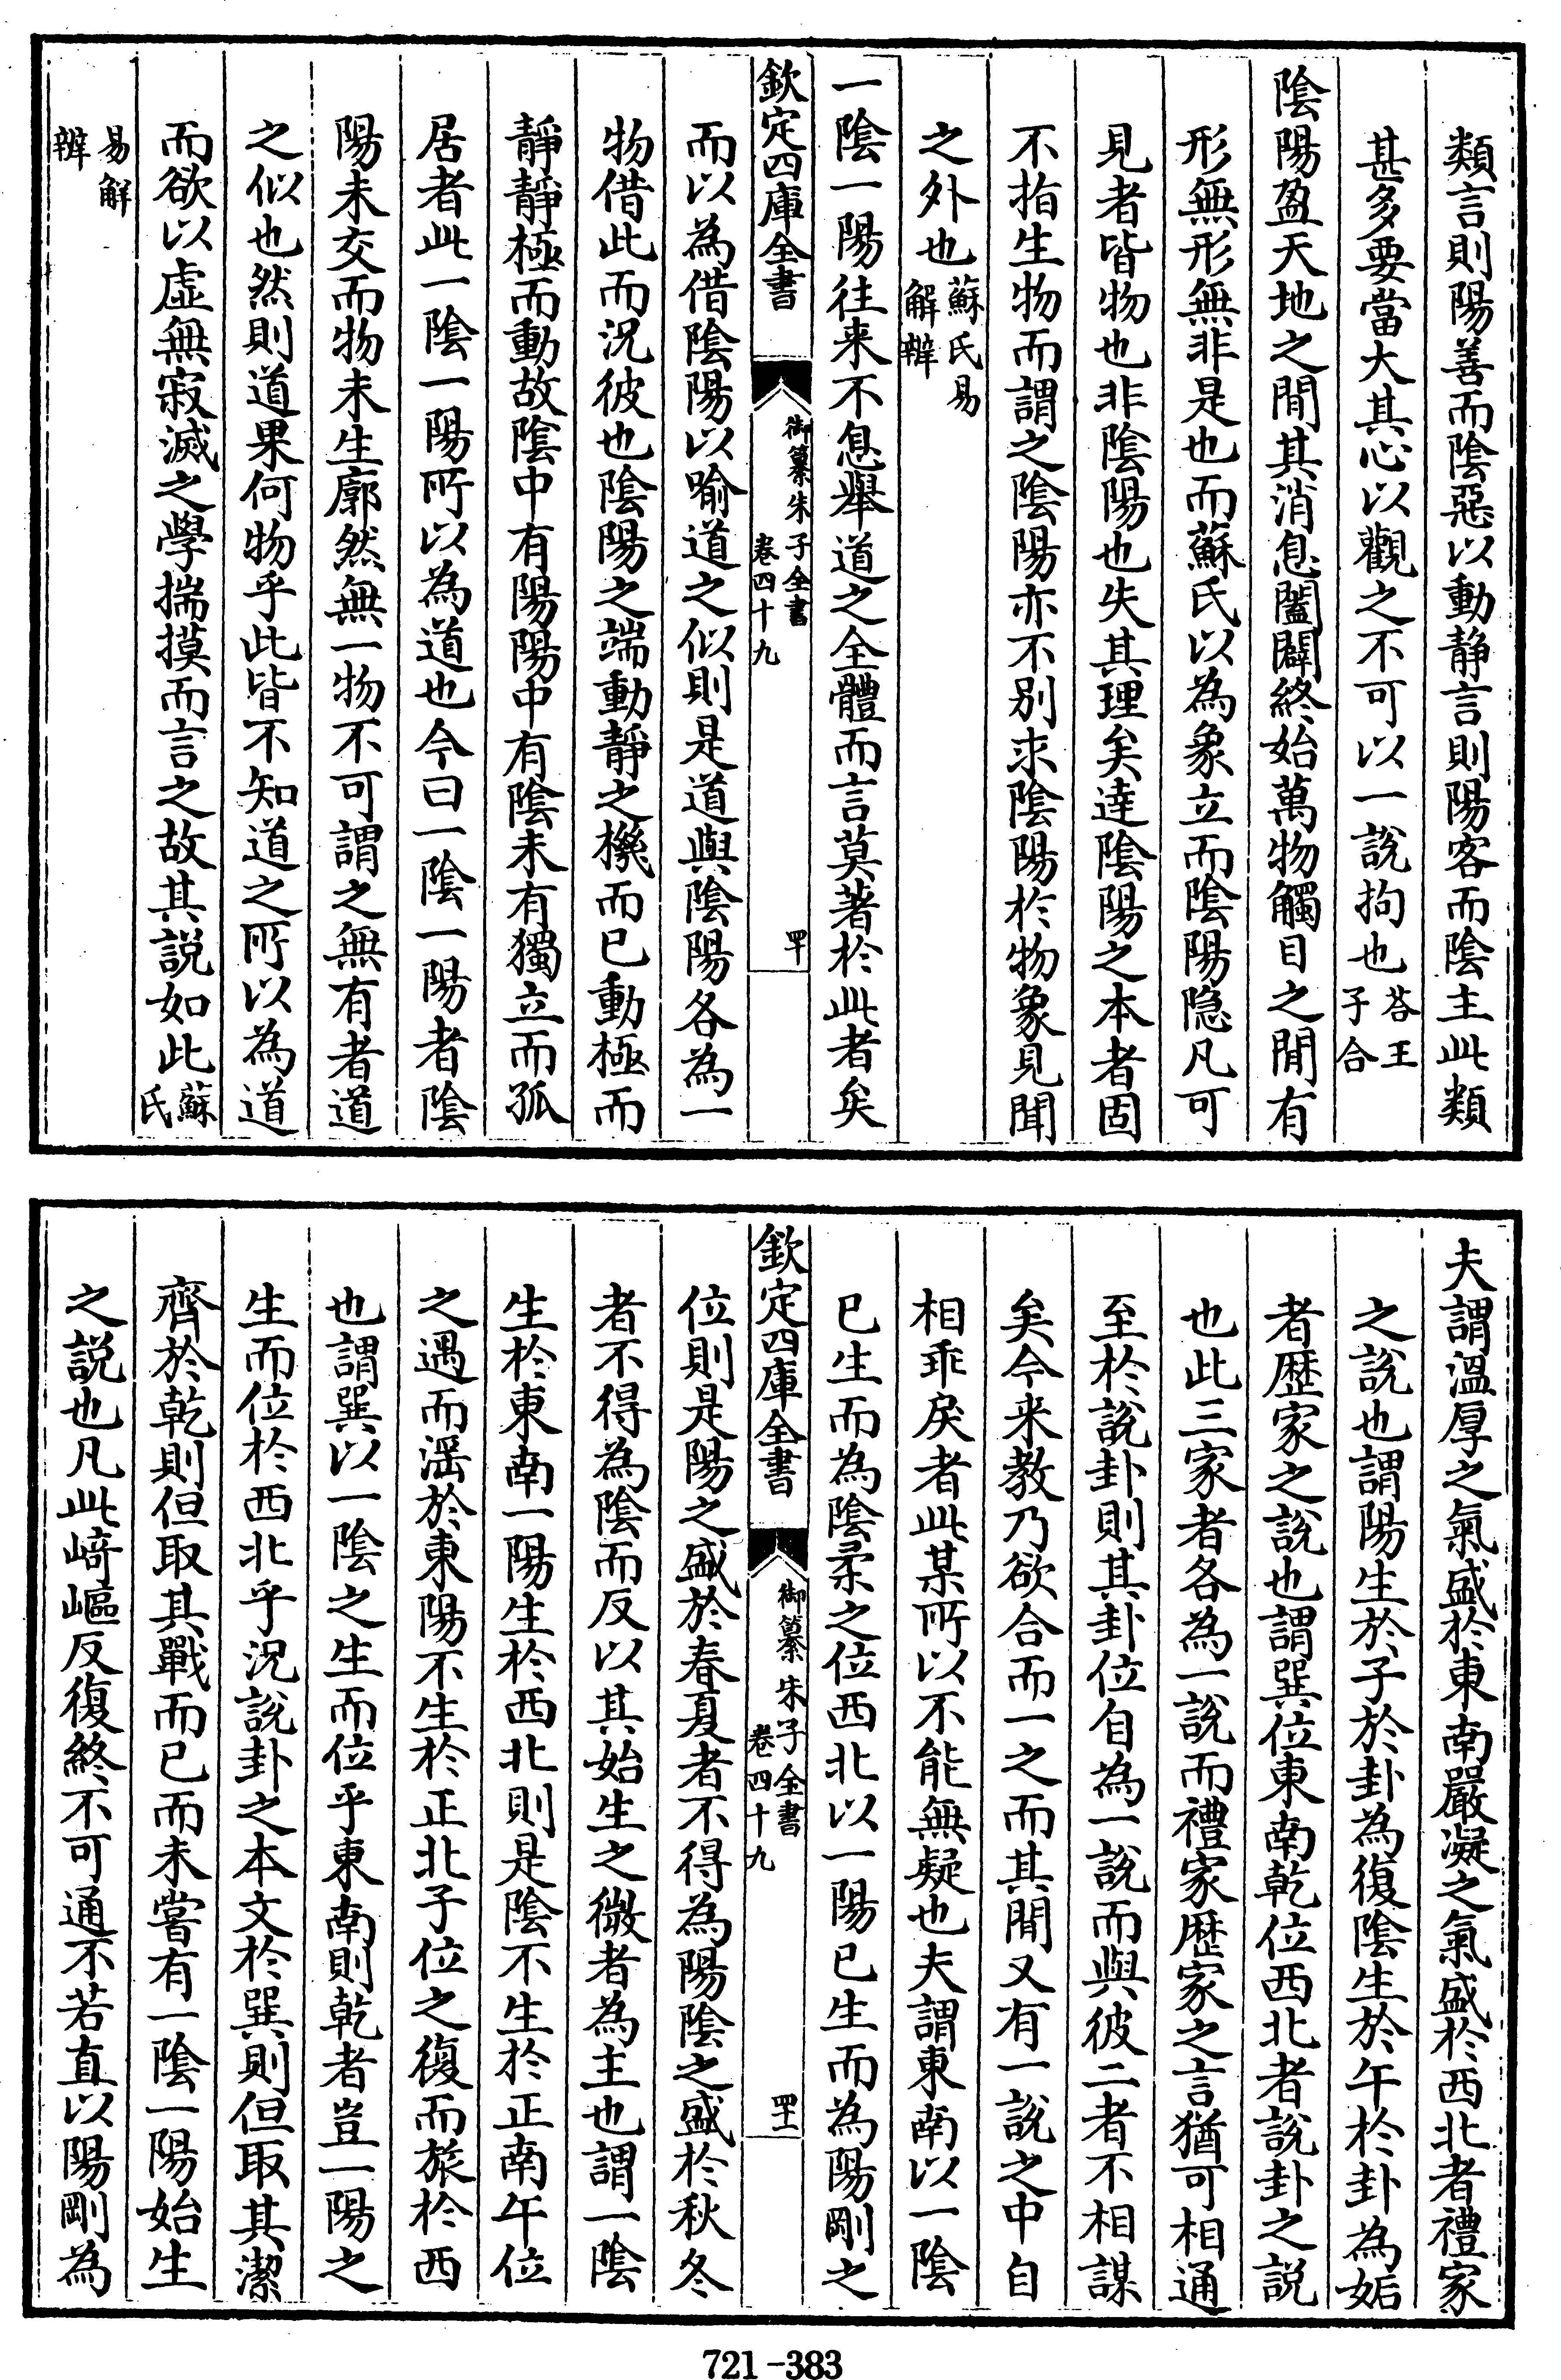 類言則陽善而陰惡以動静言則陽客而陰主此類
甚多要當大其心以觀之不可以一說拘也荅王子合
陰陽盈天地之間其消息闔闢終始萬物觸目之間有
形無形無非是也而蘇氏以為象立而陰陽隱凡可
見者皆物也非陰陽也失其理矣達陰陽之本者固
不指生物而謂之陰陽亦不别求陰陽於物象見聞
之外也蘇氏易解辯
一陰一陽往来不息舉道之全體而言莫著於此者矣
欽定四庫全書
御纂朱子全書
卷四十九
四十
而以為借陰陽以喻道之似則是道與陰陽各為一
物借此而况彼也陰陽之端動靜之機而已動極而
靜靜極而動故陰中有陽陽中有陰未有獨立而孤
居者此一陰一陽所以為道也今曰一陰一陽者陰
陽未交而物未生廓然無一物不可謂之無有者道
之似也然則道果何物乎此皆不知道之所以為道
而欲以虚無寂滅之學揣摸而言之故其説如此蘇氏
易解辯
夫謂溫厚之氣盛於東南嚴凝之氣盛於西北者禮家
之説也謂陽生於子於卦為復陰生於午於卦為姤
者歴家之説也謂巽位東南乾位西北者說卦之説
也此三家者各為一說而禮家歴家之言猶可相通
至於説卦則其卦位自為一說而與彼二者不相謀
矣今来教乃欲合而一之而其間又有一說之中自
相乖戾者此某所以不能無疑也夫謂東南以一陰
已生而為陰柔之位西北以一陽已生而為陽剛之
欽定四庫全書
御纂朱子全書
卷四十九
四十一
位則是陽之盛於春夏者不得為陽陰之盛於秋冬
者不得為陰而反以其始生之微者為主也謂一陰
生於東南一陽生於西北則是陰不生於正南午位
之遇而滛於東陽不生於正北子位之復而旅於西
也謂巽以一陰之生而位乎東南則乾者豈一陽之
生而位於西北乎况說卦之本文於巽則但取其潔
齊於乾則但取其戰而已而未嘗有一陰一陽始生
之説也凡此﨑嶇反復終不可通不若直以陽剛為
721-383